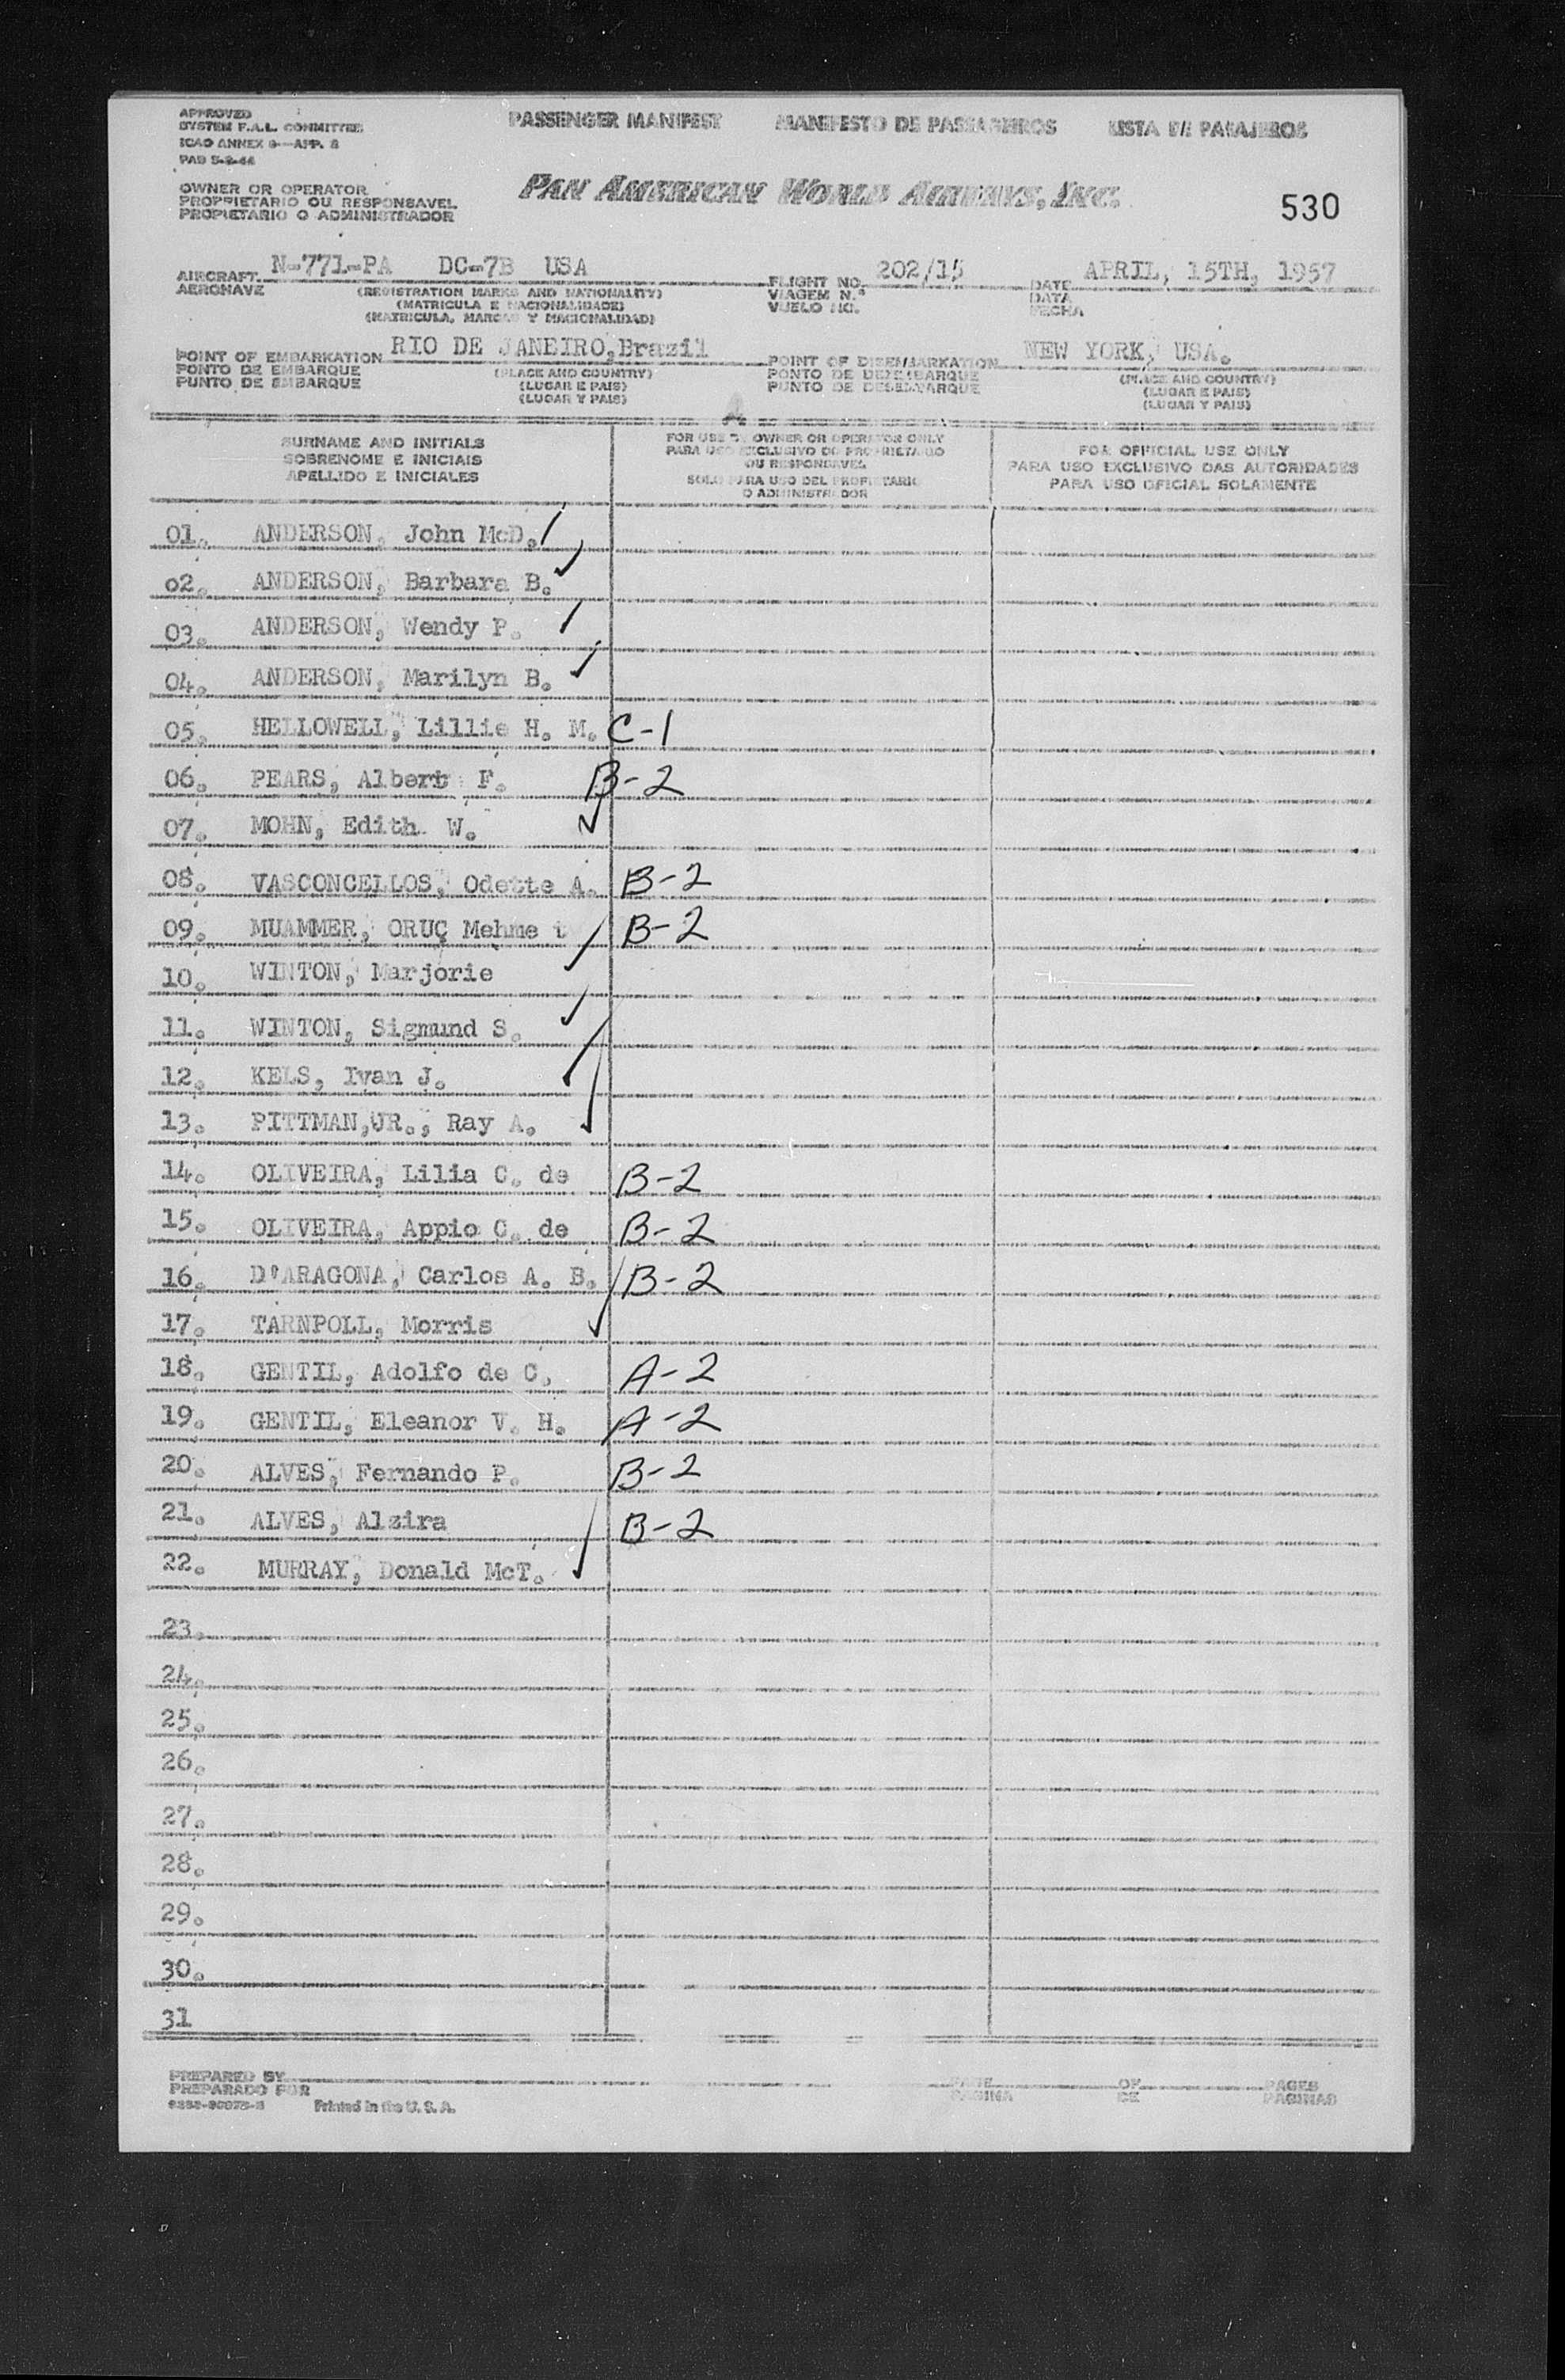 APPROVED
SYSTEM F.A.L. COMMITTEE
ICAO ANNEX 9—APP. 8
PAB 5-2-44
PASSENGER MANIFEST MANIFESTO DE PASSAGEIROS LISTA DE PASAJEROS
OWNER OR OPERATOR
PROPRIETARIO OU RESPONSAVEL
PROPIETARIO O ADMINISTRADOR
PAN AMERICAN WORLD AIRWAYS, INC.
530
AIRCRAFT N-771-PA DC-7B USA FLIGHT NO. 202/15 DATE APRIL, 15TH, 1957
AERONAVE (REGISTRATION MARKS AND NATIONALITY) VIAGEM N.º DATA
(MATRICULA E NACIONALIDADE) VUELO NO. FECHA
(MATRICULA, MARCAS Y NACIONALIDAD)
POINT OF EMBARKATION RIO DE JANEIRO, Brazil POINT OF DISEMBARKATION NEW YORK, USA.
PONTO DE EMBARQUE (PLACE AND COUNTRY) PONTO DE DESEMBARQUE (PLACE AND COUNTRY)
PUNTO DE EMBARQUE (LUGAR E PAIS) PUNTO DE DESEMBARQUE (LUGAR E PAIS)
(LUGAR Y PAIS) (LUGAR Y PAIS)
SURNAME AND INITIALS
SOBRENOME E INICIAIS
APELLIDO E INICIALES
FOR USE BY OWNER OR OPERATOR ONLY
PARA USO EXCLUSIVO DO PROPRIETARIO
OU RESPONSAVEL
SOLO PARA USO DEL PROPIETARIO
O ADMINISTRADOR
FOR OFFICIAL USE ONLY
PARA USO EXCLUSIVO DAS AUTORIDADES
PARA USO OFICIAL SOLAMENTE
01. ANDERSON, John McD.
02. ANDERSON, Barbara B.
03. ANDERSON, Wendy P.
04. ANDERSON, Marilyn B.
05. HELLOWELL, Lillie H. M. C-1
06. PEARS, Albert F. B-2
07. MOHN, Edith W.
08. VASCONCELLOS, Odette A. B-2
09. MUAMMER, ORUÇ Mehme t B-2
10. WINTON, Marjorie
11. WINTON, Sigmund S.
12. KELS, Ivan J.
13. PITTMAN,JR., Ray A.
14. OLIVEIRA, Lilia C. de B-2
15. OLIVEIRA, Appio C. de B-2
16. D'ARAGONA, Carlos A. B. B-2
17. TARNPOLL, Morris
18. GENTIL, Adolfo de C. A-2
19. GENTIL, Eleanor V. H. A-2
20. ALVES, Fernando P. B-2
21. ALVES, Alzira B-2
22. MURRAY, Donald McT.
23.
24.
25.
26.
27.
28.
29.
30.
31
PREPARED BY PAGE OF PAGES
PREPARADO POR PAGINA DE PAGINAS
Printed in the U. S. A.